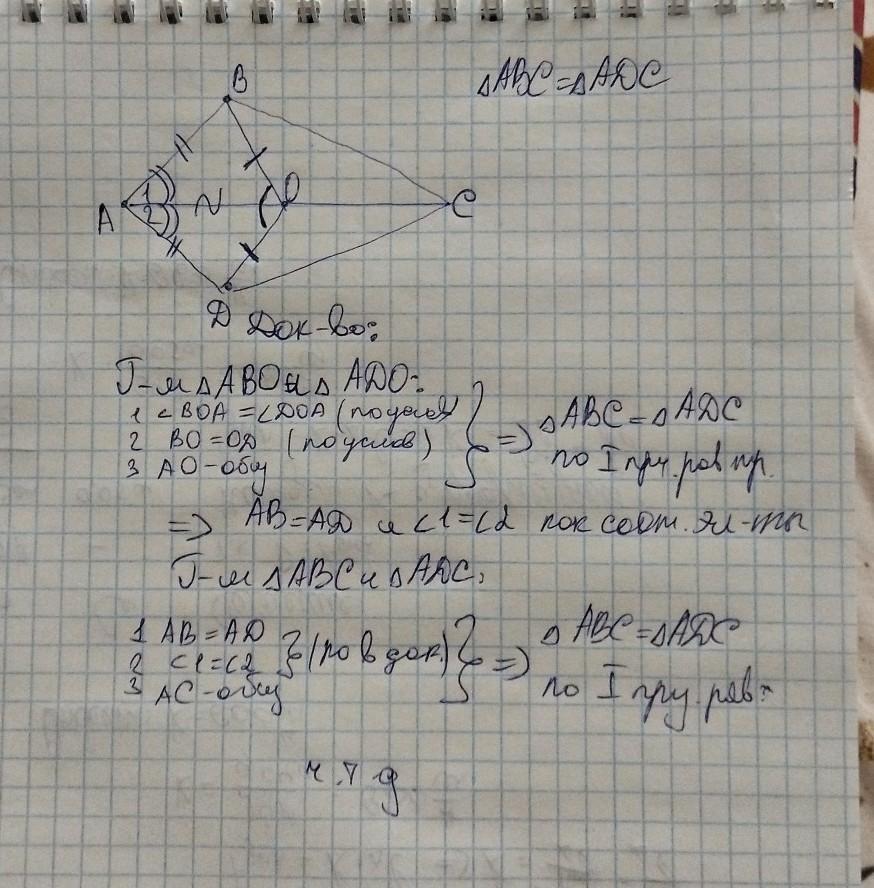 △ABC=△ADC
B
A 1 2 O C
D
Док-во:
Г-м △ABO и △ADO:
1 ∠BOA=∠DOA (по услов)
2 BO=OD (по услов)
3 AO-общ
} => △ABC=△ADC
по I пр. рав тр.
=> AB=AD и ∠1=∠2 как соот. эл-ты
Г-м △ABC и △ADC:
1 AB=AD
2 ∠1=∠2 } (по в док.)
3 AC-общ
} => △ABC=△ADC
по I пр. рав.
ч.т.д.